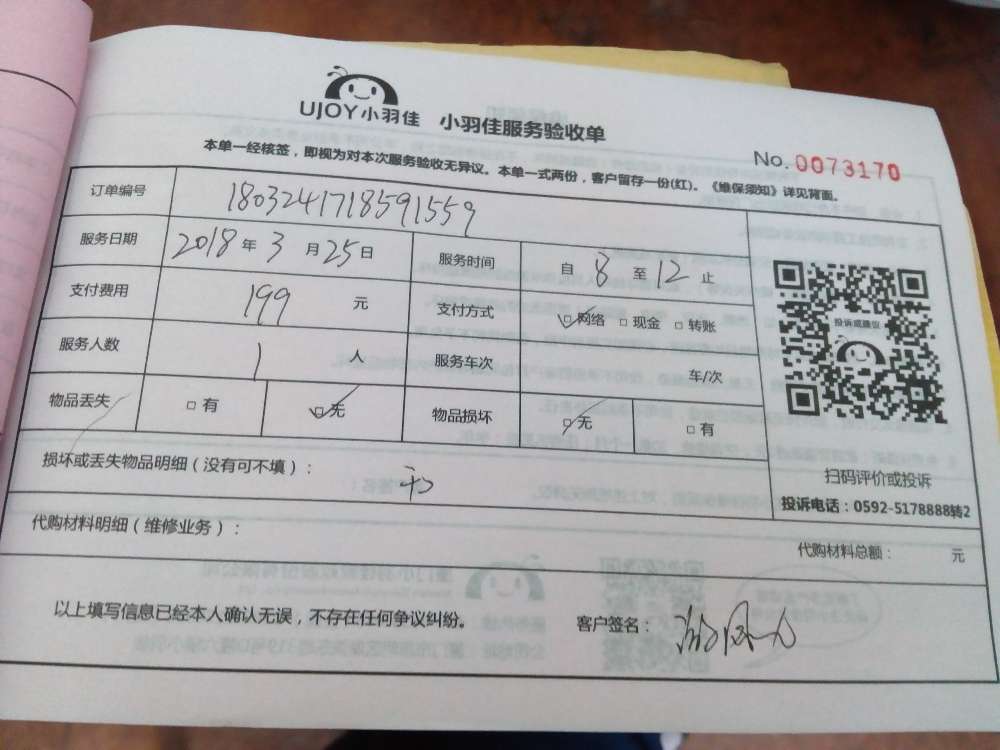 UJOY小羽佳 小羽佳服务验收单
No. 0073170
本单一经核签，即视为对本次服务验收无异议。本单一式两份，客户留存一份(红)。《维保须知》详见背面。
订单编号 1803241718591559
服务日期 2018年3月25日 服务时间 自8至12止
支付费用 199 元 支付方式 ☑网络 □现金 □转账
服务人数 1 人 服务车次 车/次
物品丢失 □有 ☑无 物品损坏 ☑无 □有
投诉或建议
扫码评价或投诉
投诉电话：0592-5178888转2
损坏或丢失物品明细（没有可不填）：
代购材料明细（维修业务）：
代购材料总额： 元
以上填写信息已经本人确认无误，不存在任何争议纠纷。 客户签名：